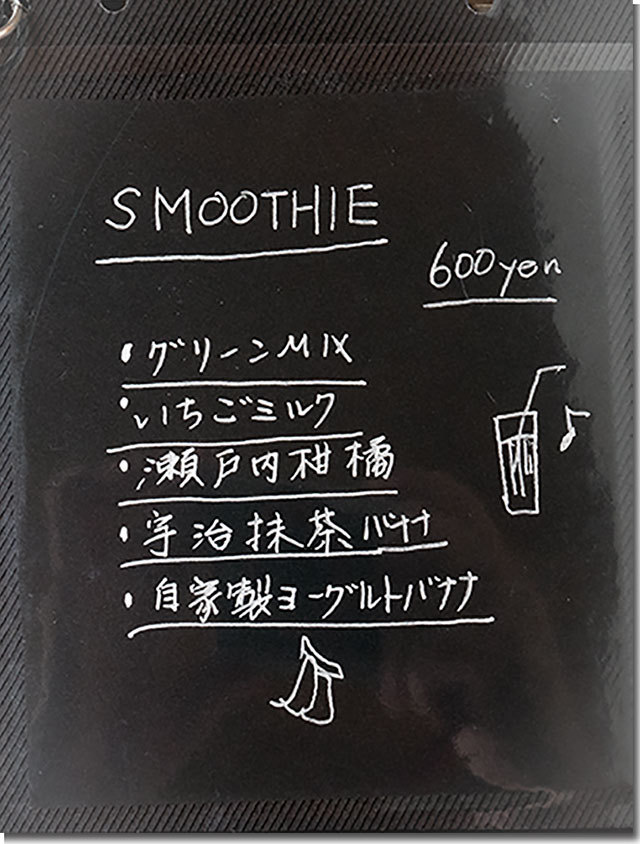 SMOOTHIE
600yen
・グリーンMIX
・いちごミルク
・瀬戸内柑橘
・宇治抹茶バナナ
・自家製ヨーグルトバナナ